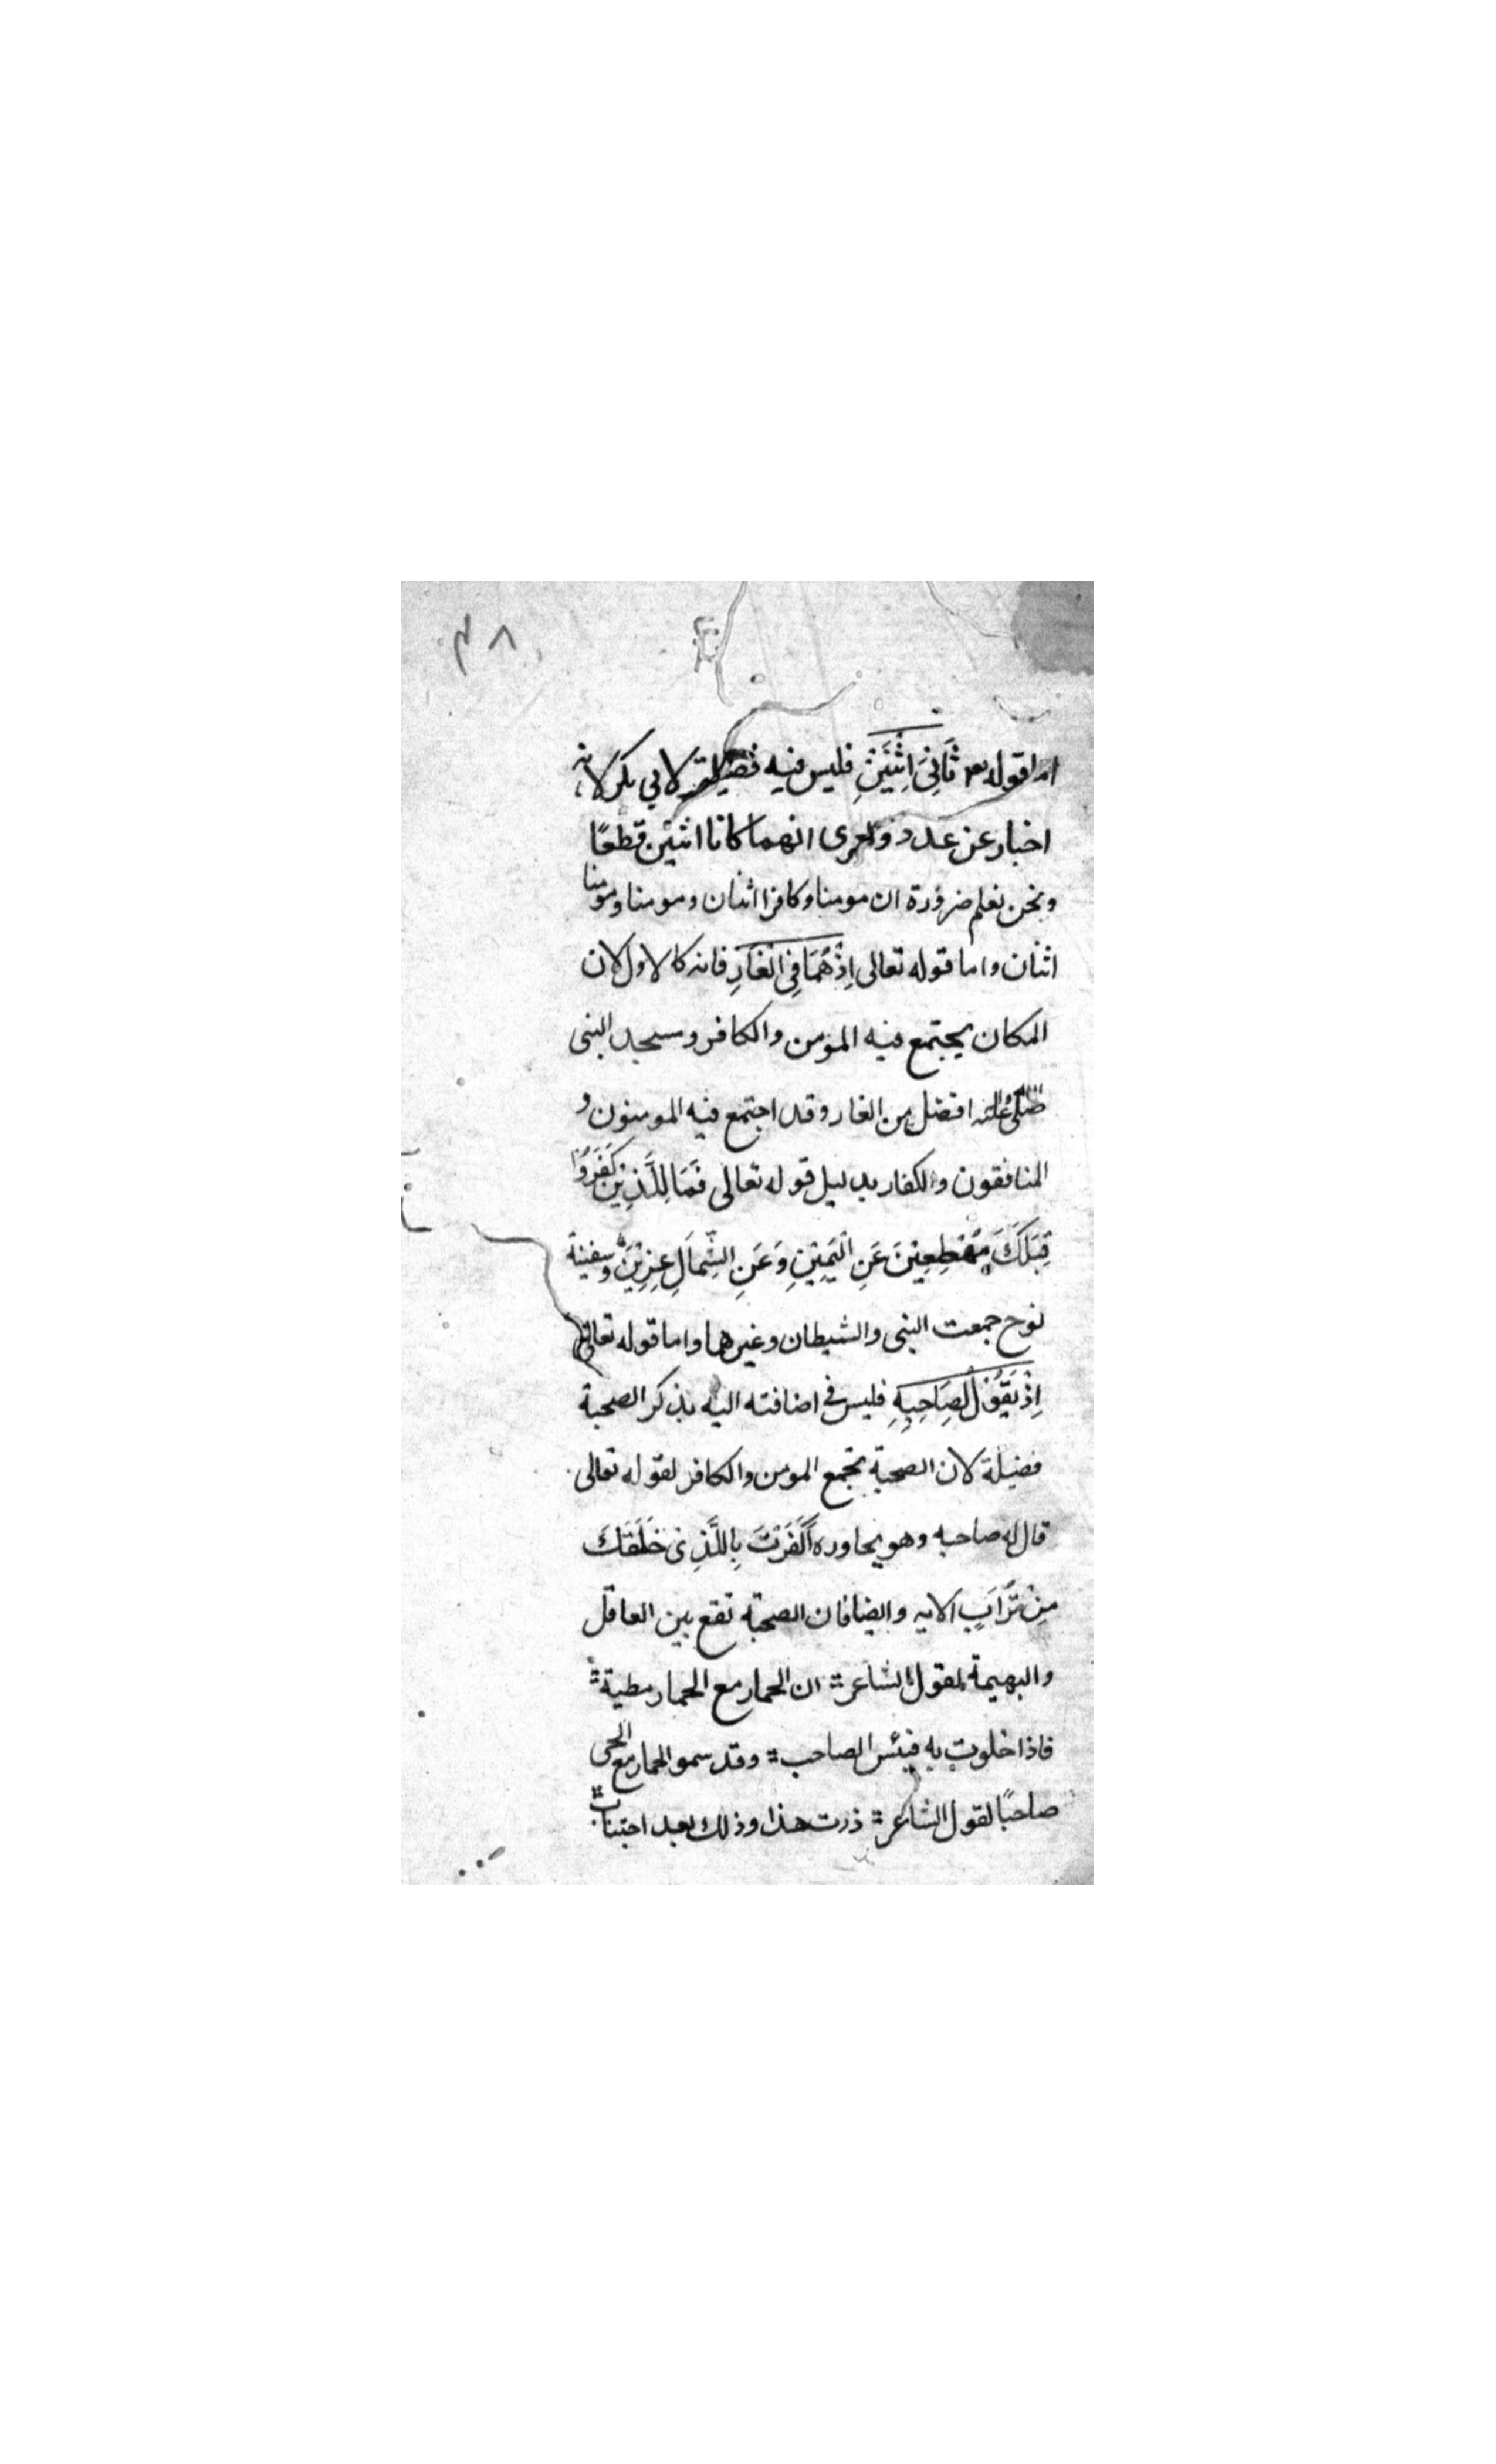 ٣٨
اما قوله تع ثَانِیَ اثْنَيْنِ فليس فيه فضيلة لابي بكر لانه
اخبار عن عدد ولعمرى انهما كانا اثنين قطعًا
ونحن نعلم ضرورة ان مومنا وكافرا اثنان ومومنا ومومنا
اثنان واما قوله تعالى اِذْهُمَا فِي الْغَارِ فانه كالاول لان
المكان يجتمع فيه المؤمن والكافر ومسجد النبى
افضل من الغار وقد اجتمع فيه المومنون و
المنافقون والكفار بدليل قوله تعالى فَمَا لِلَّذِيْنَ كَفَرُوْا
قِبَلَكَ مُهْطِعِيْنَ عَنِ الْيَمِيْنِ وَعَنِ الشِّمَالِ عِزِيْنَ وسفينة
نوح جمعت النبى والشيطان وغيرهما واما قوله تعالى
اِذْ يَقُوْلُ لِصَاحِبِهِ فليس فى اضافته اليه بذكر الصحبة
فضيلة لان الصحبة تجمع المومن والكافر لقوله تعالى
قال له صاحبه وهو يحاوره اَكَفَرْتَ بِالَّذِى خَلَقَكَ
مِنْ تُرَابٍ الايه وايضا فان الصحبة تقع بين العاقل
والبهيمة لقول الشاعر ان الحمار مع الحمار مطية
فاذا خلوت به فبئس الصاحب وقد سمو الحمار مع الحى
صاحبًا لقول الشاعر زرت هندا وذلك بعد اجتناب